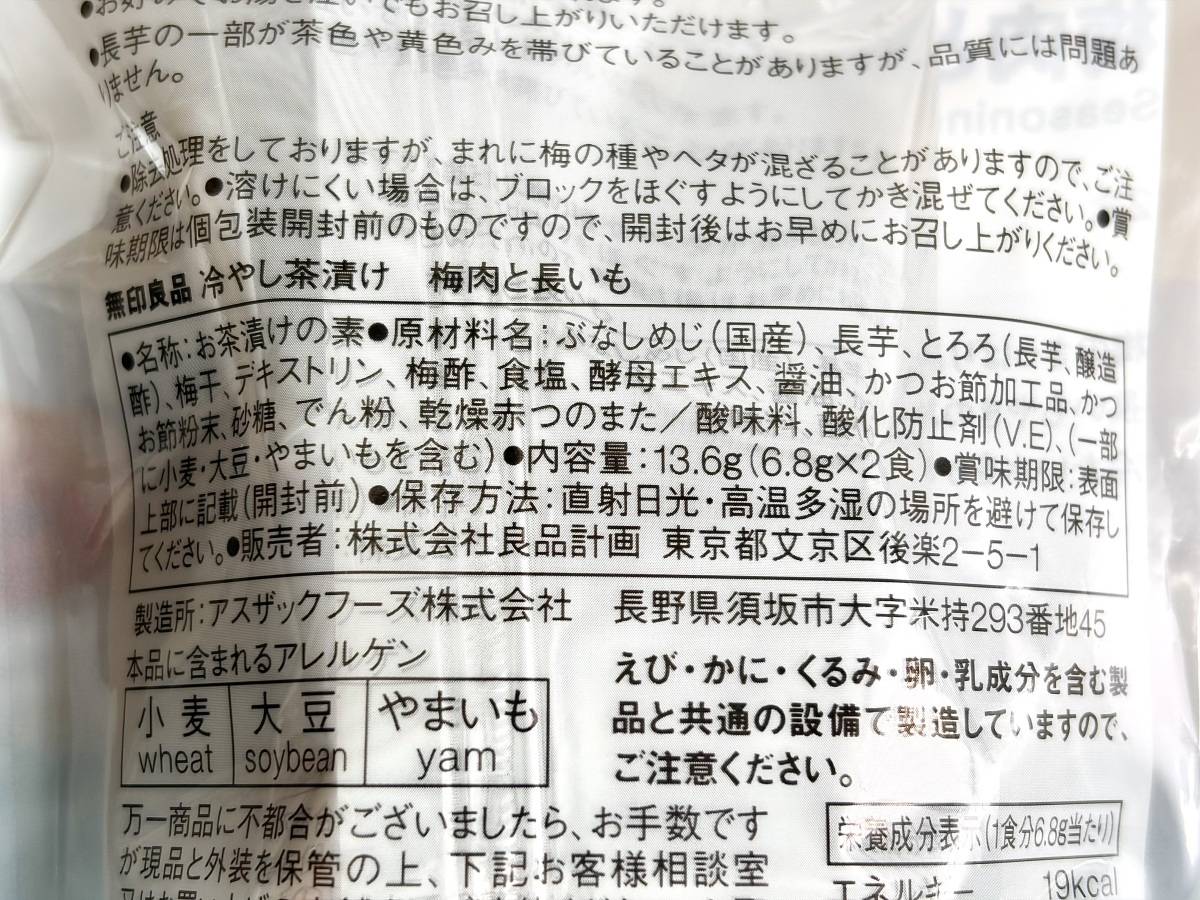 いでもお召し上がりいただけます。
●長芋の一部が茶色や黄色みを帯びていることがありますが、品質には問題あ
りません。
ご注意
●除去処理をしておりますが、まれに梅の種やヘタが混ざることがありますので、ご注
意ください。●溶けにくい場合は、ブロックをほぐすようにしてかき混ぜてください。●賞
味期限は個包装開封前のものですので、開封後はお早めにお召し上がりください。
無印良品 冷やし茶漬け 梅肉と長いも
●名称:お茶漬けの素●原材料名:ぶなしめじ(国産)、長芋、とろろ(長芋、醸造
酢)、梅干、デキストリン、梅酢、食塩、酵母エキス、醤油、かつお節加工品、かつ
お節粉末、砂糖、でん粉、乾燥赤つのまた/酸味料、酸化防止剤(V.E)、(一部
に小麦・大豆・やまいもを含む)●内容量:13.6g(6.8g×2食)●賞味期限:表面
上部に記載(開封前)●保存方法:直射日光・高温多湿の場所を避けて保存し
てください。●販売者:株式会社良品計画 東京都文京区後楽2-5-1
製造所:アスザックフーズ株式会社 長野県須坂市大字米持293番地45
本品に含まれるアレルゲン
小麦 大豆 やまいも
wheat soybean yam
えび・かに・くるみ・卵・乳成分を含む製
品と共通の設備で製造していますので、
ご注意ください。
万一商品に不都合がございましたら、お手数です
が現品と外装を保管の上、下記お客様相談室
栄養成分表示(1食分6.8g当たり)
エネルギー 19kcal